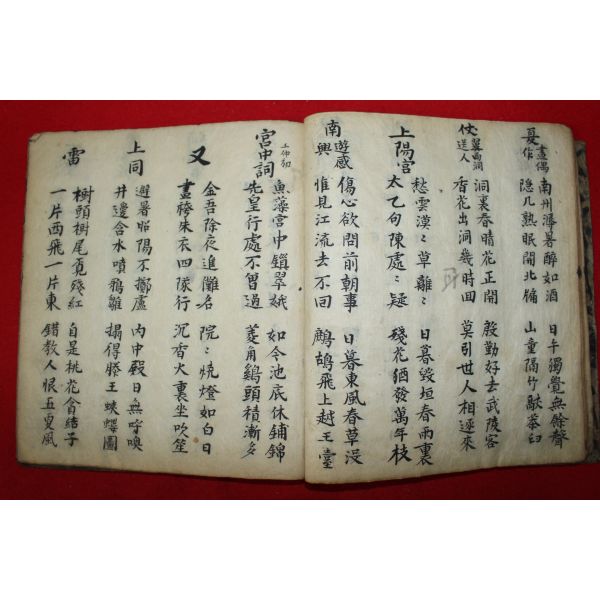 夏晝偶作
南州溽暑醉如酒
隱几熟眠開北牖
日午獨覺無餘聲
山童隔竹敲茶臼
伏翼西洞送人
洞裏春晴花正開
香花出洞幾時回
殷勤好去武陵客
莫引世人相逐來
上陽宮
愁雲漠〻草離〻
太乙句陳處〻疑
日暮毀垣春雨裏
殘花猶發萬年枝
南遊感興
傷心欲問前朝事
惟見江流去不回
日暮東風春草没
鷓鴣飛上越王臺
宮中詞
魚藻宮中鎖翠娥
先皇行處不曾過
如今池底休鋪錦
菱角鷄頭積漸多
又
金吾除夜進儺名
畫袴朱衣四隊行
院〻燒燈如白日
沉香火裏坐吹笙
上同
避暑昭陽不擲盧
井邊含水噴鴉雛
內中殿日無呼喚
搨得滕王蛺蝶圖
雷
樹頭樹尾覓殘紅
一片西飛一片東
自是桃花貪結子
錯教人恨五更風